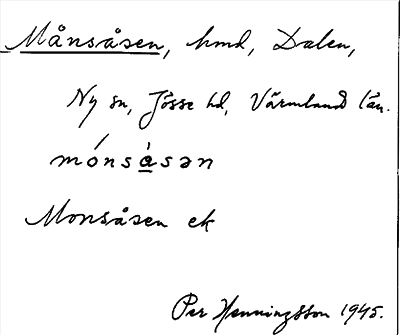 Månsåsen, hmd, Dalen,
Ny sn, Jösse hd, Värmlands län.
mónsàsən
Monsåsen ek
Per Henningsson 1945.